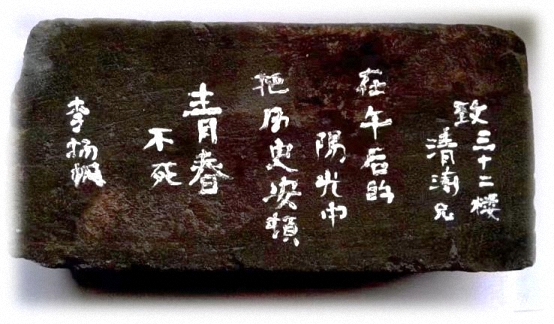 致三十二楼
清涛兄
在午后的
陽光中
把历史安頓
青春
不死
李杨帆